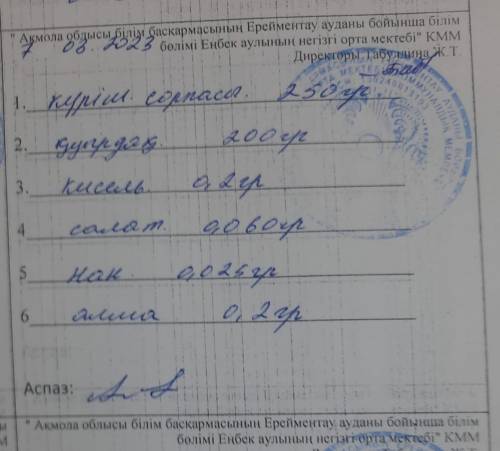 " Ақмола облысы білім басқармасының Ерейментау ауданы бойынша білім
7 03. 2023 бөлімі Еңбек аулының негізгі орта мектебі" КММ
Директоры Табулдина Ж.Т
1. күріш сорпасы. 250гр
2. қуырдақ 200гр
3. кисель 0,2гр
4 салат. 0,060гр
5 нан 0,025гр
6 алма 0,2гр
Аспаз:
" Ақмола облысы білім басқармасының Ерейментау ауданы бойынша білім
бөлімі Еңбек аулының негізгі орта мектебі" КММ